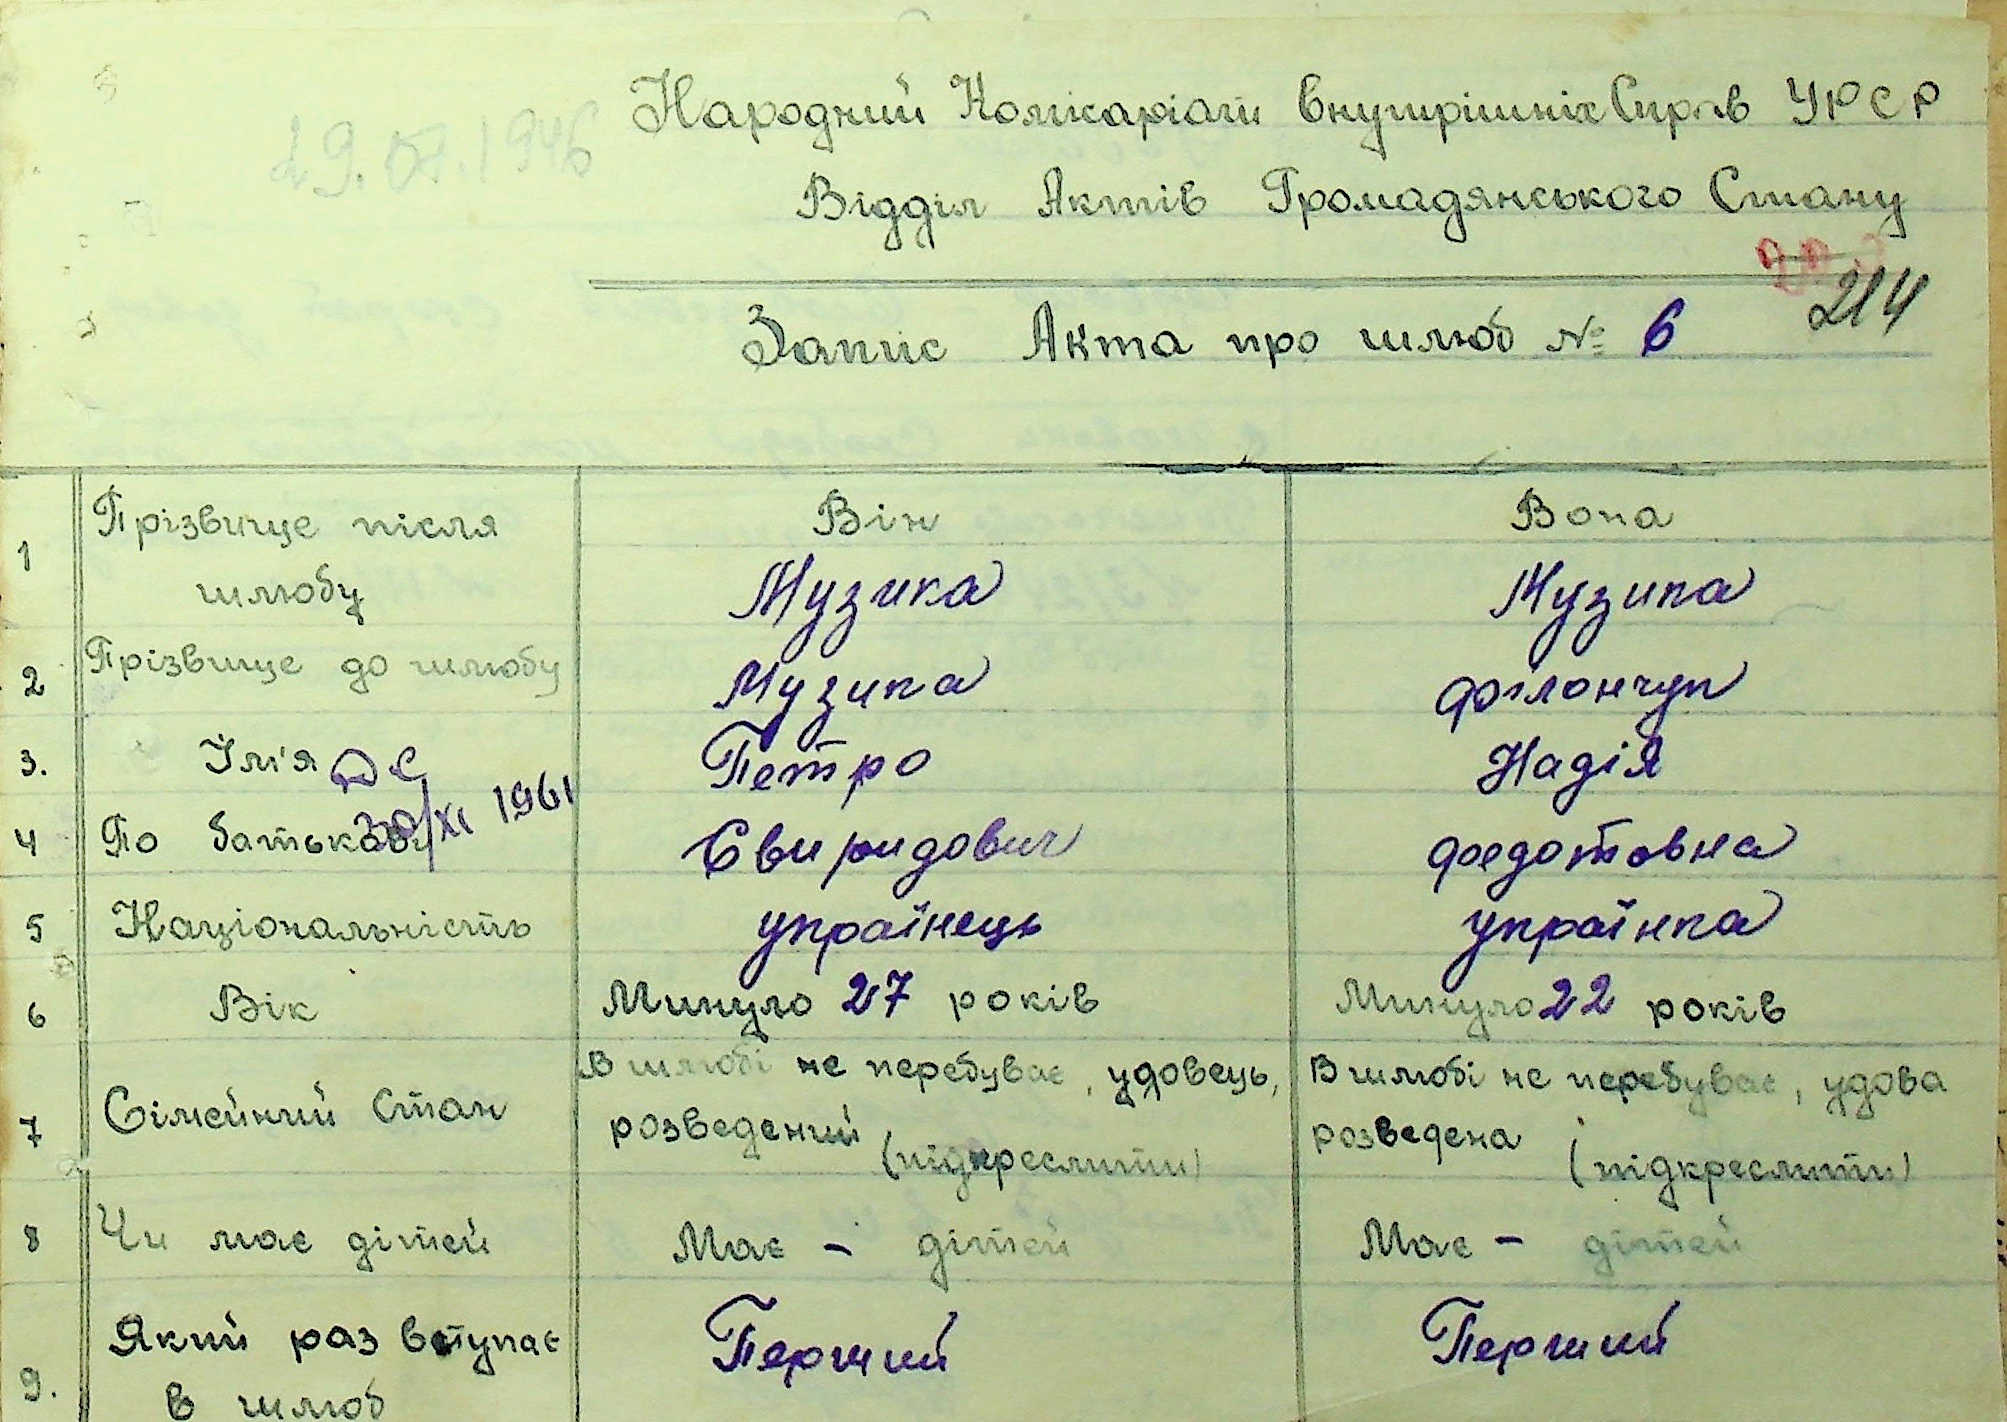 29.07.1946
Народний Комісаріат Внутрішніх Справ УРСР
Відділ Актів Громадянського Стану
214
Запис Акта про шлюб № 6
Він Вона
1 Прізвище після шлюбу Музика Музика
2 Прізвище до шлюбу Музика
3. Ім'я Петро Надія
30/XI 1961
4 По батькові Свиридович Федотовна
5 Національність українець українка
6 Вік Минуло 27 років Минуло 22 років
7 Сімейний Стан В шлюбі не перебуває, удовець, В шлюбі не перебуває, удова
розведений (підкреслити) розведена (підкреслити)
8 Чи має дітей Має – дітей Має – дітей
9. Який раз вступає Перший Перший
в шлюб